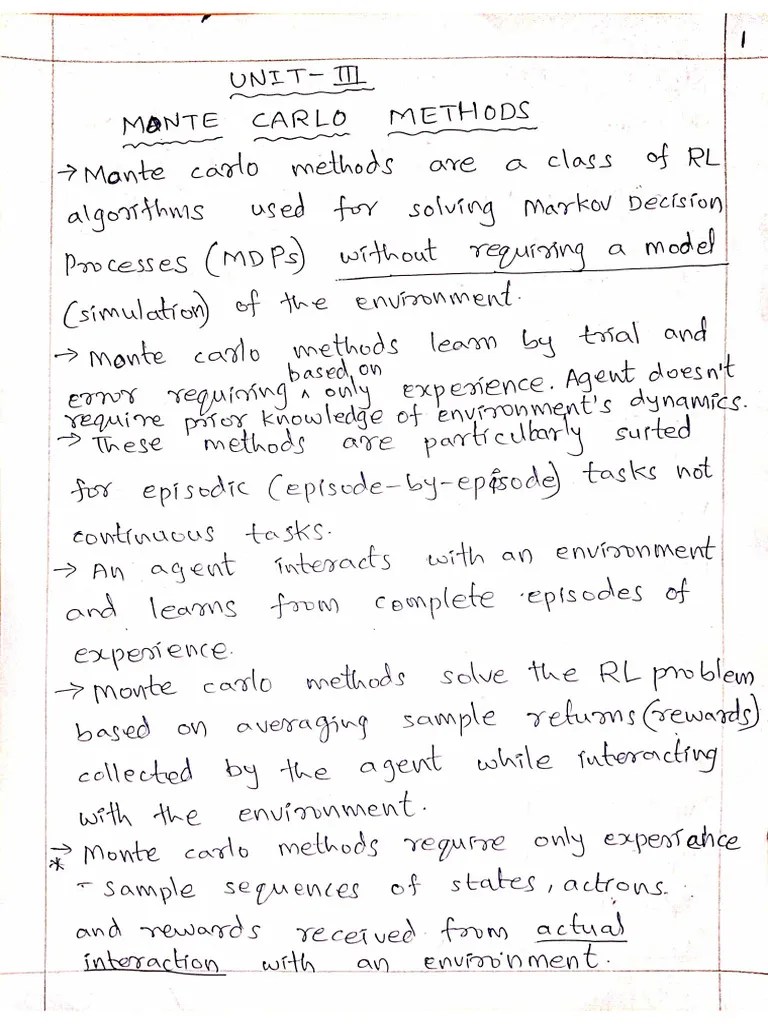 1
UNIT-III
MONTE CARLO METHODS
→ Monte carlo methods are a class of RL
algorithms used for solving Markov Decision
Processes (MDPs) without requiring a model
(simulation) of the environment.
→ Monte carlo methods learn by trial and
based on
error requiring ^ only experience. Agent doesn't
require prior knowledge of environment's dynamics.
→ These methods are particularly suited
for episodic (episode-by-episode) tasks not
continuous tasks.
→ An agent interacts with an environment
and learns from complete episodes of
experience.
→ Monte carlo methods solve the RL problem
based on averaging sample returns (rewards)
collected by the agent while interacting
with the environment.
→ Monte carlo methods require only experience
* - sample sequences of states, actions.
and rewards received from actual
interaction with an environment.